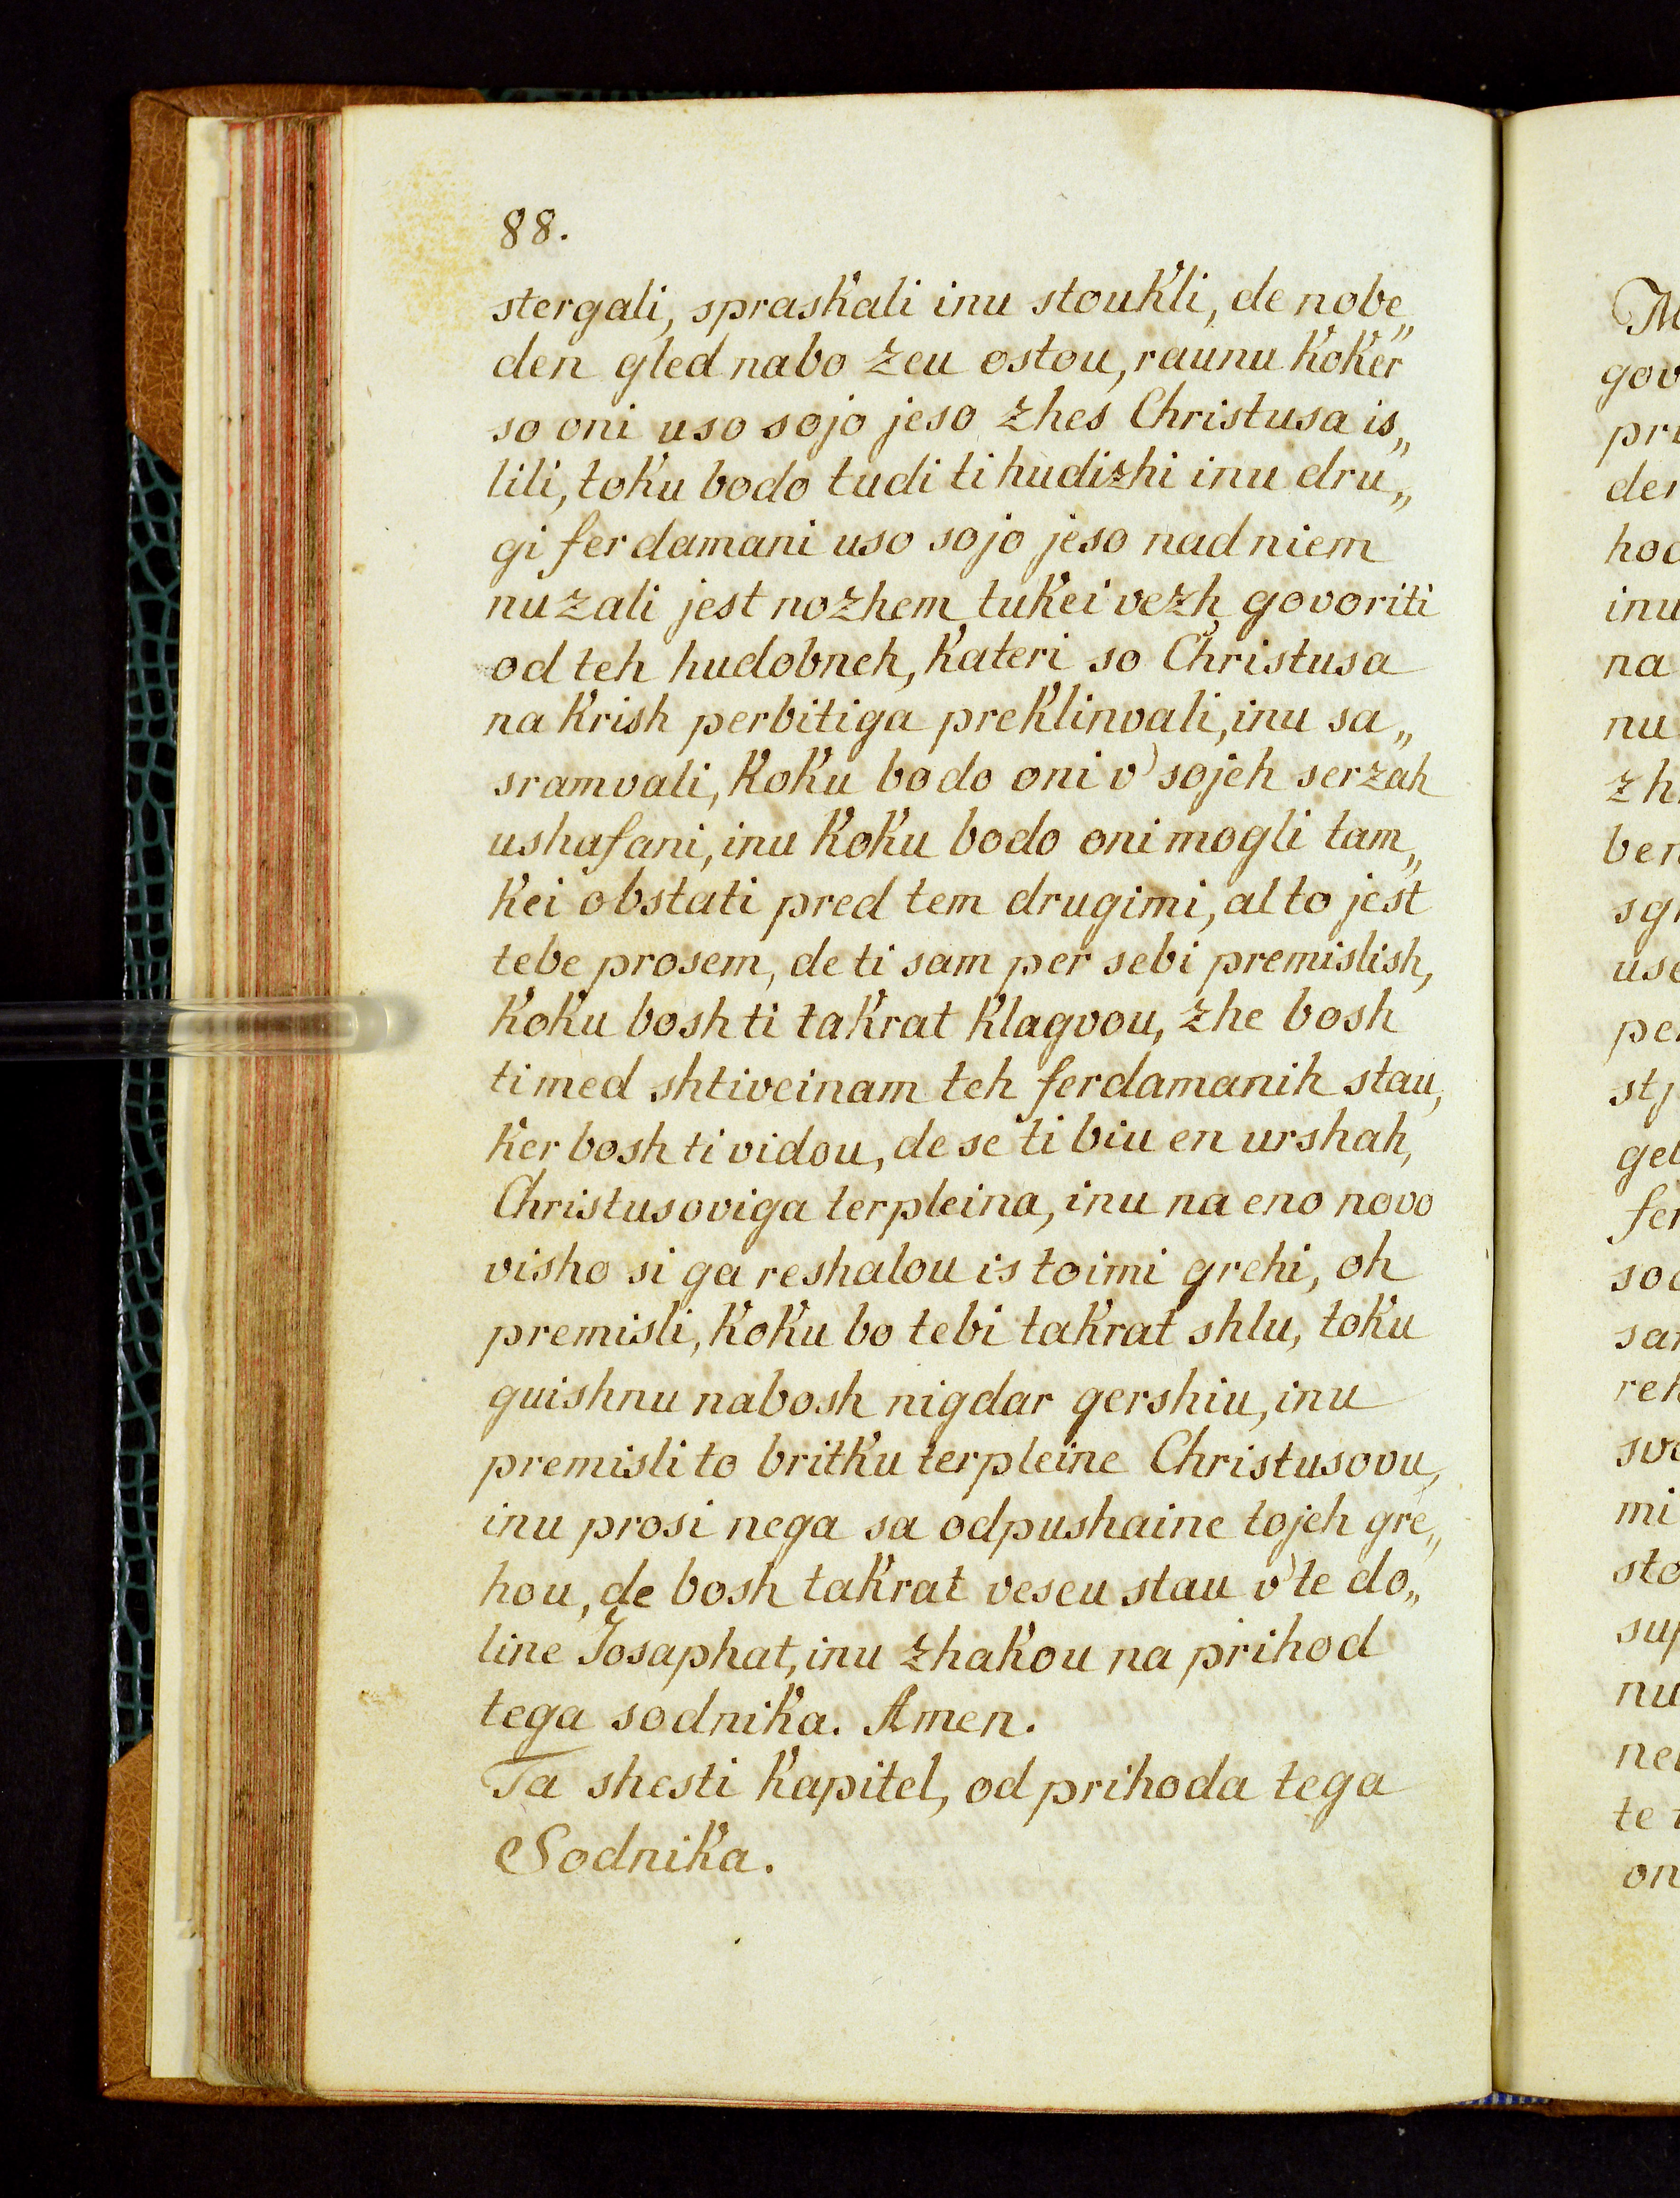 88.
stergali, spraskali inu stoukli, de nobe„
den gled nabo zeu ostou, raunu koker
so oni uso sojo jeso zhes Christusa is„
lili, toku bodo tudi ti hudizhi inu dru„
gi ferdamani uso sojo jeso nad niem
nuzali jest nozhem tukei vezh govoriti
od teh hudobneh, kateri so Christusa
na krish perbitiga preklinvali, inu sa„
sramvali, koku bodo oni v' sojeh serzah
ushafani, inu koku bodo oni mogli tam„
kei obstati pred tem drugimi, al to jest
tebe prosem, de ti sam per sebi premislish,
koku bosh ti takrat klagvou, zhe bosh
ti med shtiveinam teh ferdamanih stau,
ker bosh ti vidou, de se ti biu en urshah,
Christusoviga terpleina, inu na eno novo
visho si ga reshalou is toimi grehi, oh
premisli, koku bo tebi takrat shlu, toku
guishnu nabosh nigdar gershiu, inu
premisli to britku terpleine Christusovu,
inu prosi nega sa odpushaine tojeh gre„
hou, de bosh takrat veseu stau v' te do„
line Josaphat, inu zhakou na prihod
tega sodnika. Amen.
Ta shesti kapitel, od prihoda tega
Sodnika.
gov
inu
na
nu
zh